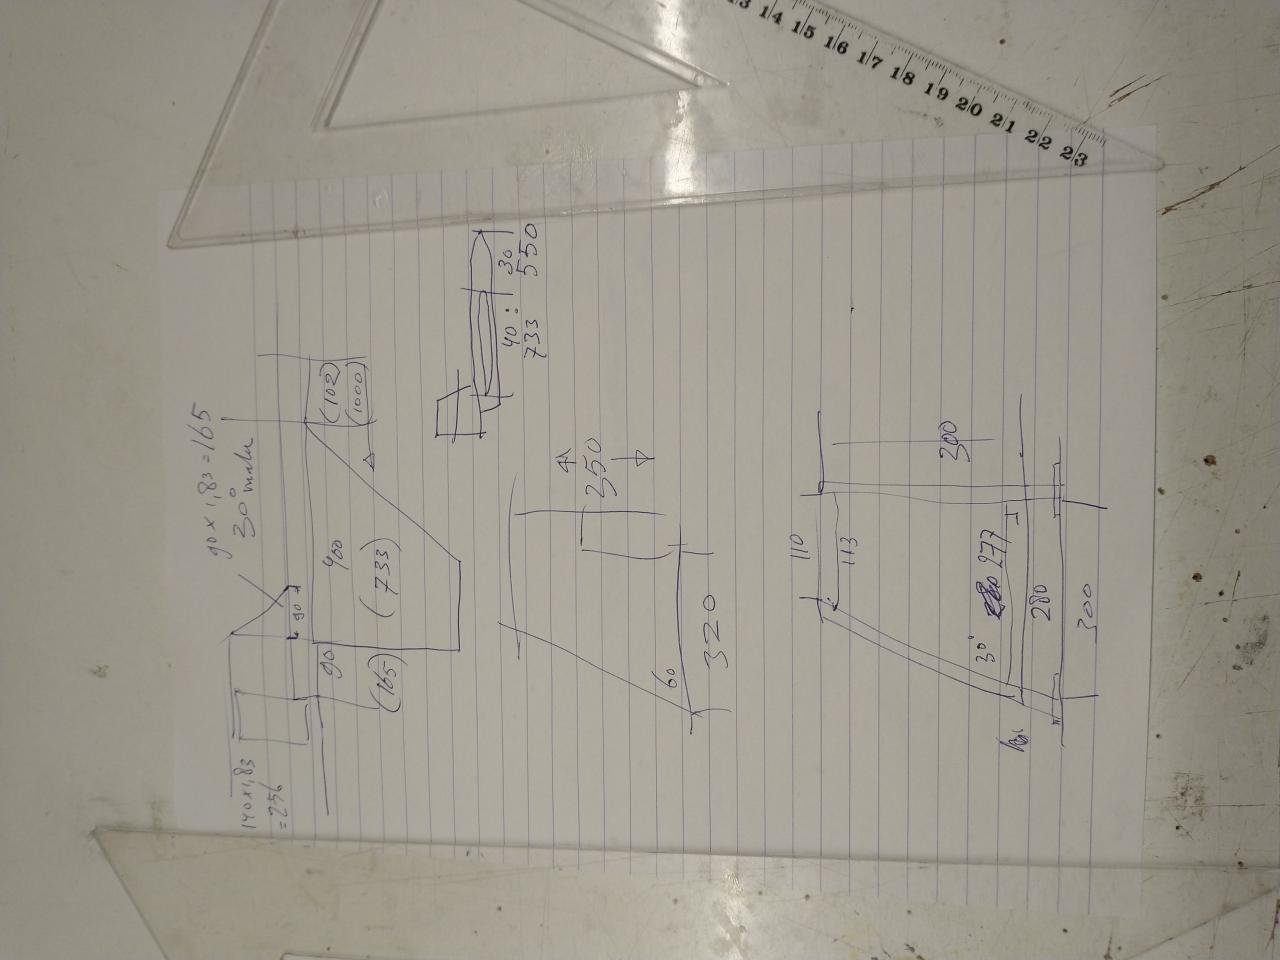 90 x 1,83 = 165
30°
140 x 1,83
= 256
90
90
(165)
400
(733)
(102)
(1000)
40 : 30
733 550
350
60
320
110
113
300
30°
277
280
300
13 14 15 16 17 18 19 20 21 22 23